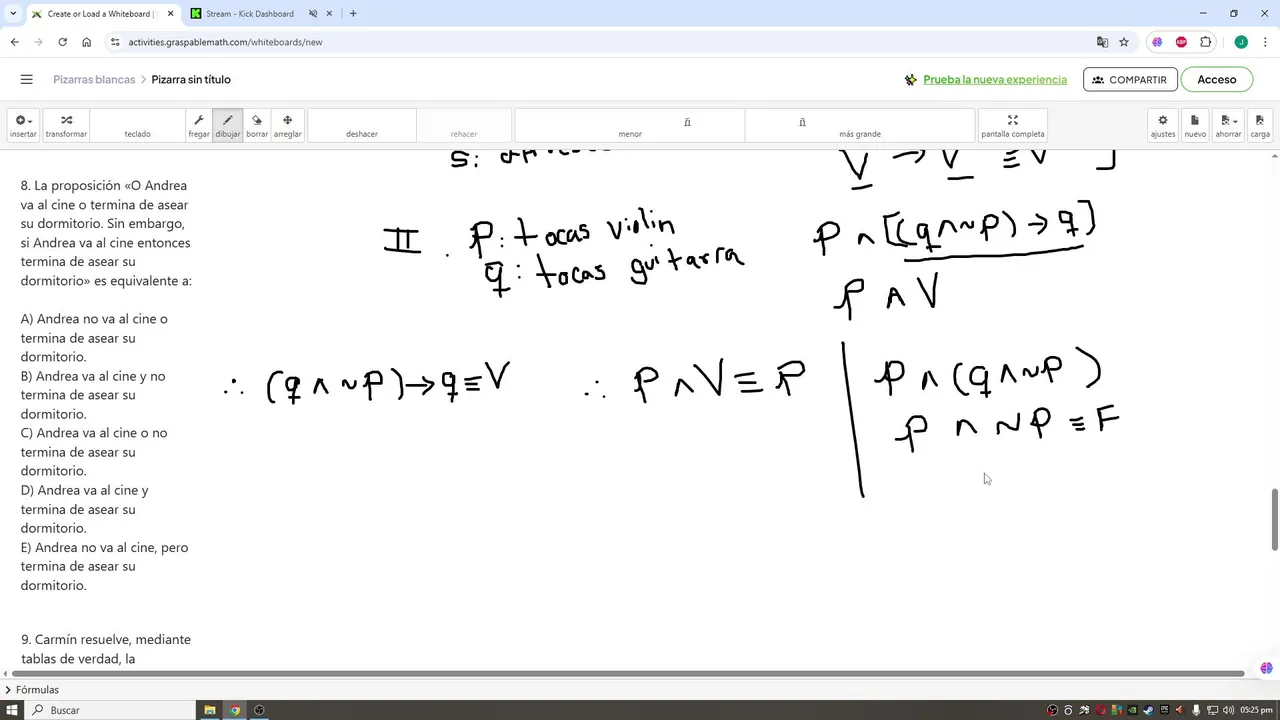 Create or Load a Whiteboard |
Stream - Kick Dashboard
activities.graspablemath.com/whiteboards/new
ABP
J
Pizarras blancas > Pizarra sin título
Prueba la nueva experiencia
COMPARTIR
Acceso
insertar transformar teclado fregar dibujar borrar arreglar deshacer rehacer menor más grande pantalla completa ajustes nuevo ahorrar carga
ñ ñ
V → V ≡ V ]
8. La proposición «O Andrea
va al cine o termina de asear
su dormitorio. Sin embargo,
si Andrea va al cine entonces
termina de asear su
dormitorio» es equivalente a:
A) Andrea no va al cine o
termina de asear su
dormitorio.
B) Andrea va al cine y no
termina de asear su
dormitorio.
C) Andrea va al cine o no
termina de asear su
dormitorio.
D) Andrea va al cine y
termina de asear su
dormitorio.
E) Andrea no va al cine, pero
termina de asear su
dormitorio.
9. Carmín resuelve, mediante
tablas de verdad, la
II. p: tocas violin
q: tocas guitarra
p ∧ [(q ∧ ~p) → q]
p ∧ V
∴ (q ∧ ~p) → q ≡ V
∴ p ∧ V ≡ p
p ∧ (q ∧ ~p)
p ∧ ~p ≡ F
Fórmulas
Buscar
05:25 pm